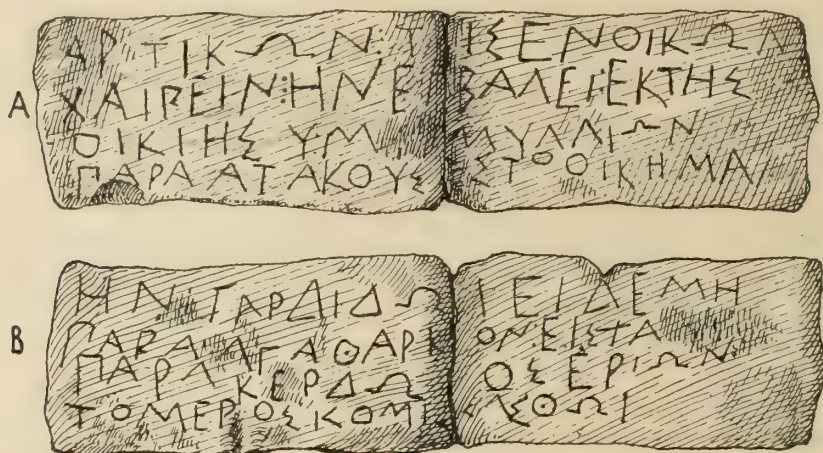 A
ΑΡΤΙΚΩΝ:Τ ΙΣΕΝΟΙΚΩΝ
ΧΑΙΡΕΙΝ:ΗΝΕ ΒΑΛΕΙ:ΕΚΤΗΣ
ΟΙΚΙΗΣ ΥΜ ΜΥΛΛΙΩΝ
ΠΑΡΑΑΤΑΚΟΥΣ ΣΤΟΟΙΚΗΜΑ
B
ΗΝ ΓΑΡΔΙΔΩ ΙΕΙΔΕΜΗ
ΠΑΡΑΑΓΑΘΑΡΚ ΟΝΕΙΣΤΑ
ΠΑΡΑΚΕΡΔΩ ΟΣΕΡΙΩΝ
ΤΟΜΕΡΟΣΚΟΜΙ ΣΑΣΘΩΙ